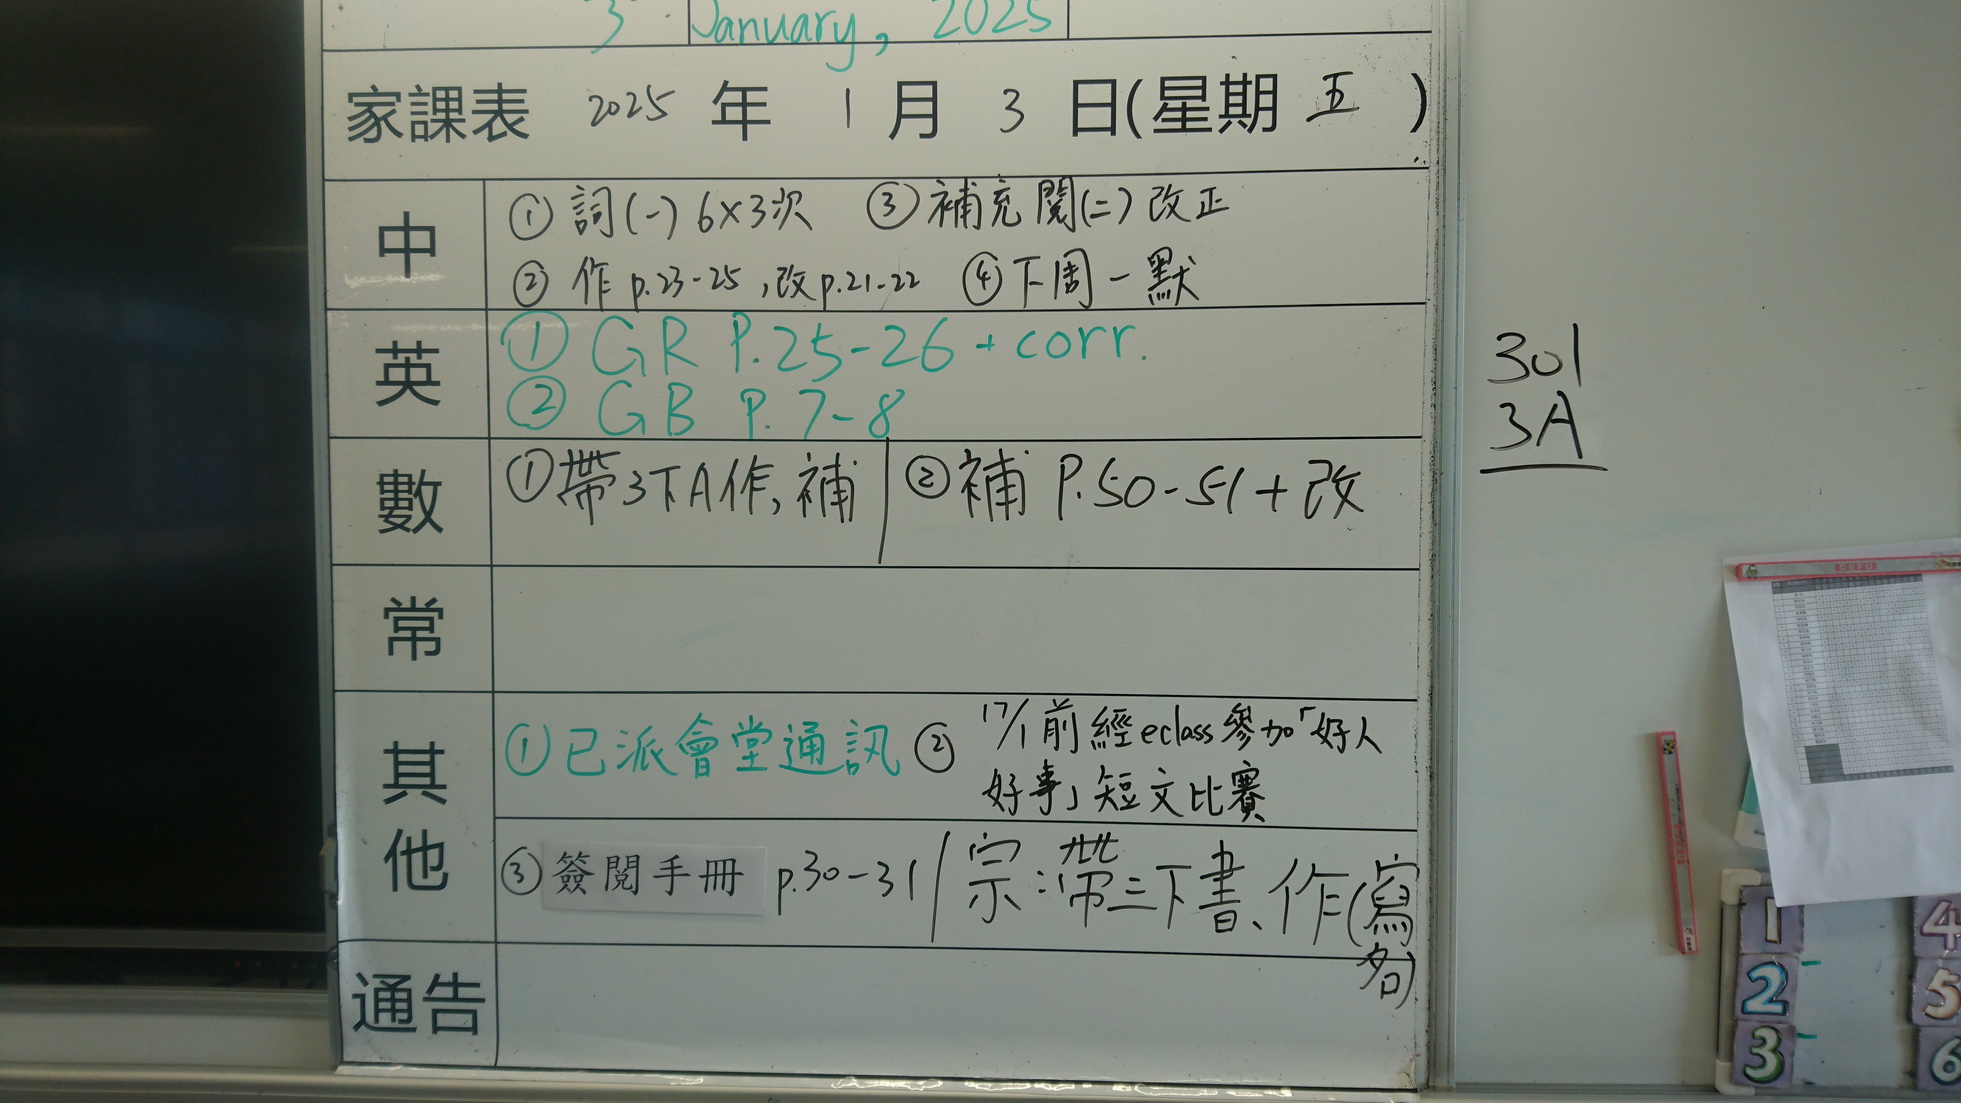 3 January, 2025
家課表 2025 年 1 月 3 日(星期 五 )
中
① 詞(一) 6×3次 ③ 補充閱(二) 改正
② 作 p.23-25 ,改p.21-22 ④ 下周一默
英
① GR P.25-26 + corr.
② GB P.7-8
數
① 帶3下A作, 補 ② 補 P.50-51 + 改
常
其他
① 已派會堂通訊 ② 17/1前經eclass參加「好人
好事」短文比賽
③ 簽閱手冊 p.30-31 / 宗:帶三下書、作(寫
名)
通告
301
3A
1
2
3
4
5
6